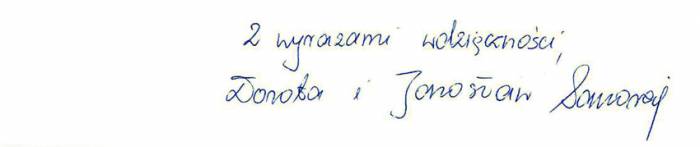 Z wyrazami wdzięczności,
Dorota i Jarosław